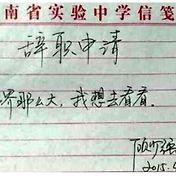 南省实验中学信笺
辞职申请
界那么大,我想去看看.
2015.4